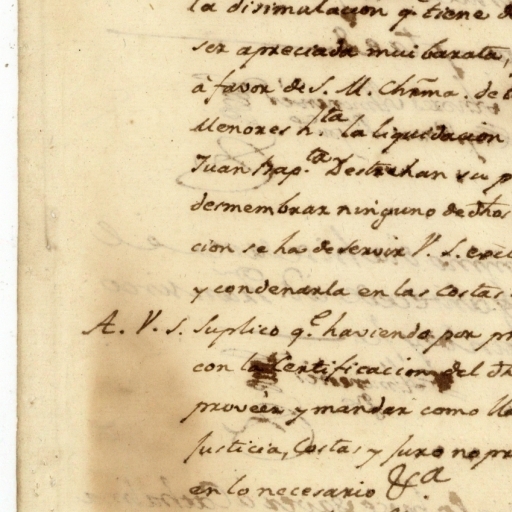 la disimulacion q.e tiene d
ser apreciada mui barata,
â favor de S. M. Chrma. de l
Menores h.ta la liquidacion
Juan Bap.ta Destrehan su p
desmembrar ninguno de dhos
cion se ha de servir V. S. exc
y condenarla en las costas
A. V. S. Suplico q.e haviendo por pr
con la Certificacion del
proveer y mandar como lle
Justicia, Costas y juro no pr
en lo necesario &.a